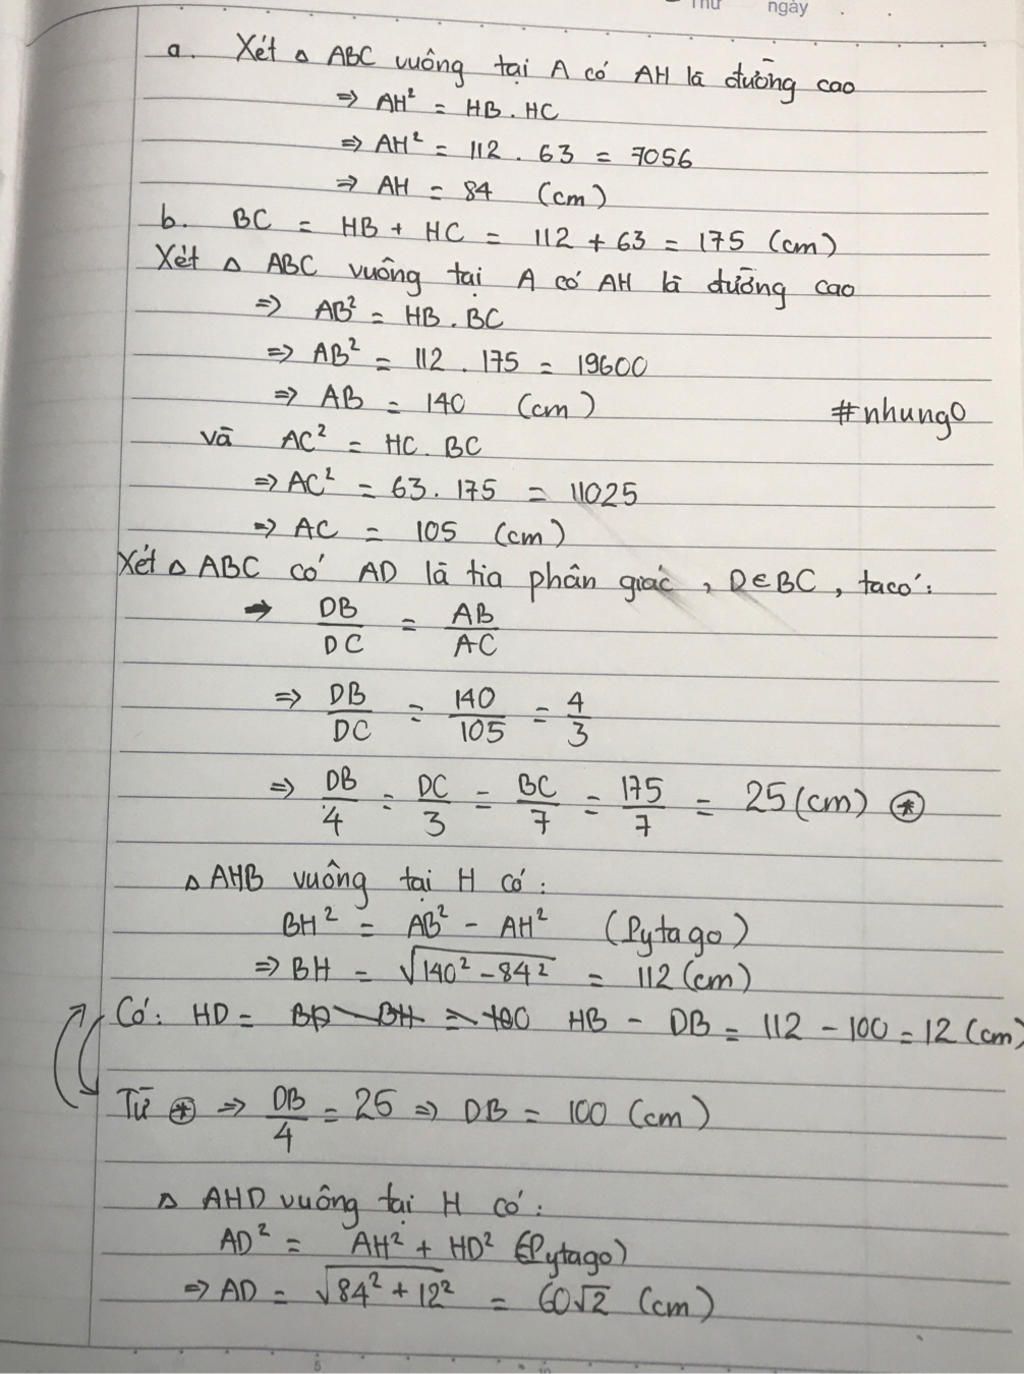 Thứ ngày
a. Xét △ ABC vuông tại A có AH là đường cao
⇒ AH² = HB . HC
⇒ AH² = 112 . 63 = 7056
⇒ AH = 84 (cm)
b. BC = HB + HC = 112 + 63 = 175 (cm)
Xét △ ABC vuông tại A có AH là đường cao
⇒ AB² = HB . BC
⇒ AB² = 112 . 175 = 19600
⇒ AB = 140 (cm)
#nhung0
và AC² = HC . BC
⇒ AC² = 63 . 175 = 11025
⇒ AC = 105 (cm)
Xét △ ABC có AD là tia phân giác , D∈BC , ta có :
⇒ DB/DC = AB/AC
⇒ DB/DC = 140/105 = 4/3
⇒ DB/4 = DC/3 = BC/7 = 175/7 = 25 (cm) ⊛
△ AHB vuông tại H có :
BH² = AB² - AH² (Pytago)
⇒ BH = √(140² - 84²) = 112 (cm)
Có : HD = HB - DB = 112 - 100 = 12 (cm)
Từ ⊛ ⇒ DB/4 = 25 ⇒ DB = 100 (cm)
△ AHD vuông tại H có :
AD² = AH² + HD² (Pytago)
⇒ AD = √(84² + 12²) = 60√2 (cm)